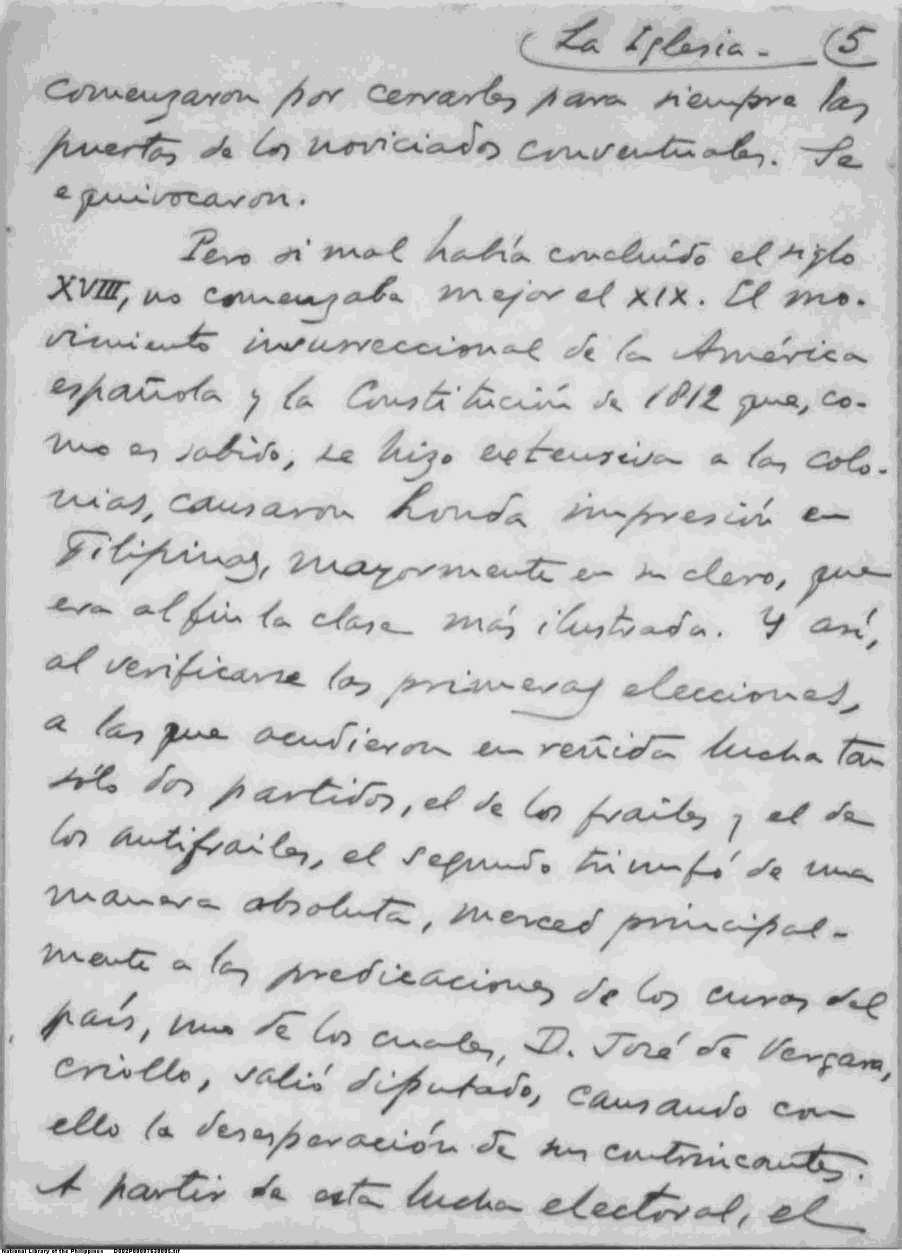 La Iglesia - (5
comenzaron por cerrarles para siempre las
puertas de los noviciados conventuales. Se
equivocaron.
Pero si mal había concluído el siglo
XVIII, no comenzaba mejor el XIX. El mo-
vimiento insurreccional de la América
española y la Constitución de 1812 que, co-
mo es sabido, se hizo extensiva a las colo-
nias, causaron honda impresión en
Filipinas, mayormente en su clero, que
era al fin la clase más ilustrada. Y así,
al verificarse las primeras elecciones,
a las que acudieron en reñida lucha tan
sólo dos partidos, el de los frailes y el de
los antifrailes, el segundo triunfó de una
manera absoluta, merced principal-
mente a las predicaciones de los curas del
país, uno de los cuales, D. José de Vergara,
criollo, salió diputado, causando con
ello la desesperación de sus contrincantes.
A partir de esta lucha electoral, el
National Library of the Philippines